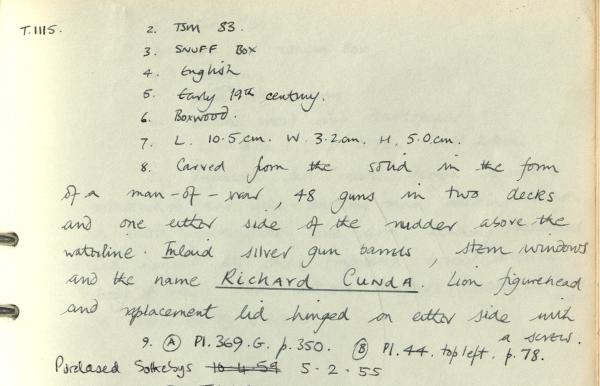 T.1115.
2. TSM 83.
3. SNUFF BOX
4. English
5. Early 19th century.
6. Boxwood.
7. L. 10.5.cm. W. 3.2.cm. H. 5.0.cm.
8. Carved from the solid in the form
of a man-of-war, 48 guns in two decks
and one either side of the rudder above the
waterline. Inlaid silver gun barrels, stern windows
and the name RICHARD CUNDA. Lion figurehead
and replacement lid hinged on either side with
a screw.
9. (A) Pl. 369.G. p.350. (B) Pl. 44. top left. p. 78.
Purchased Sothebys 10.4.59 5.2.55